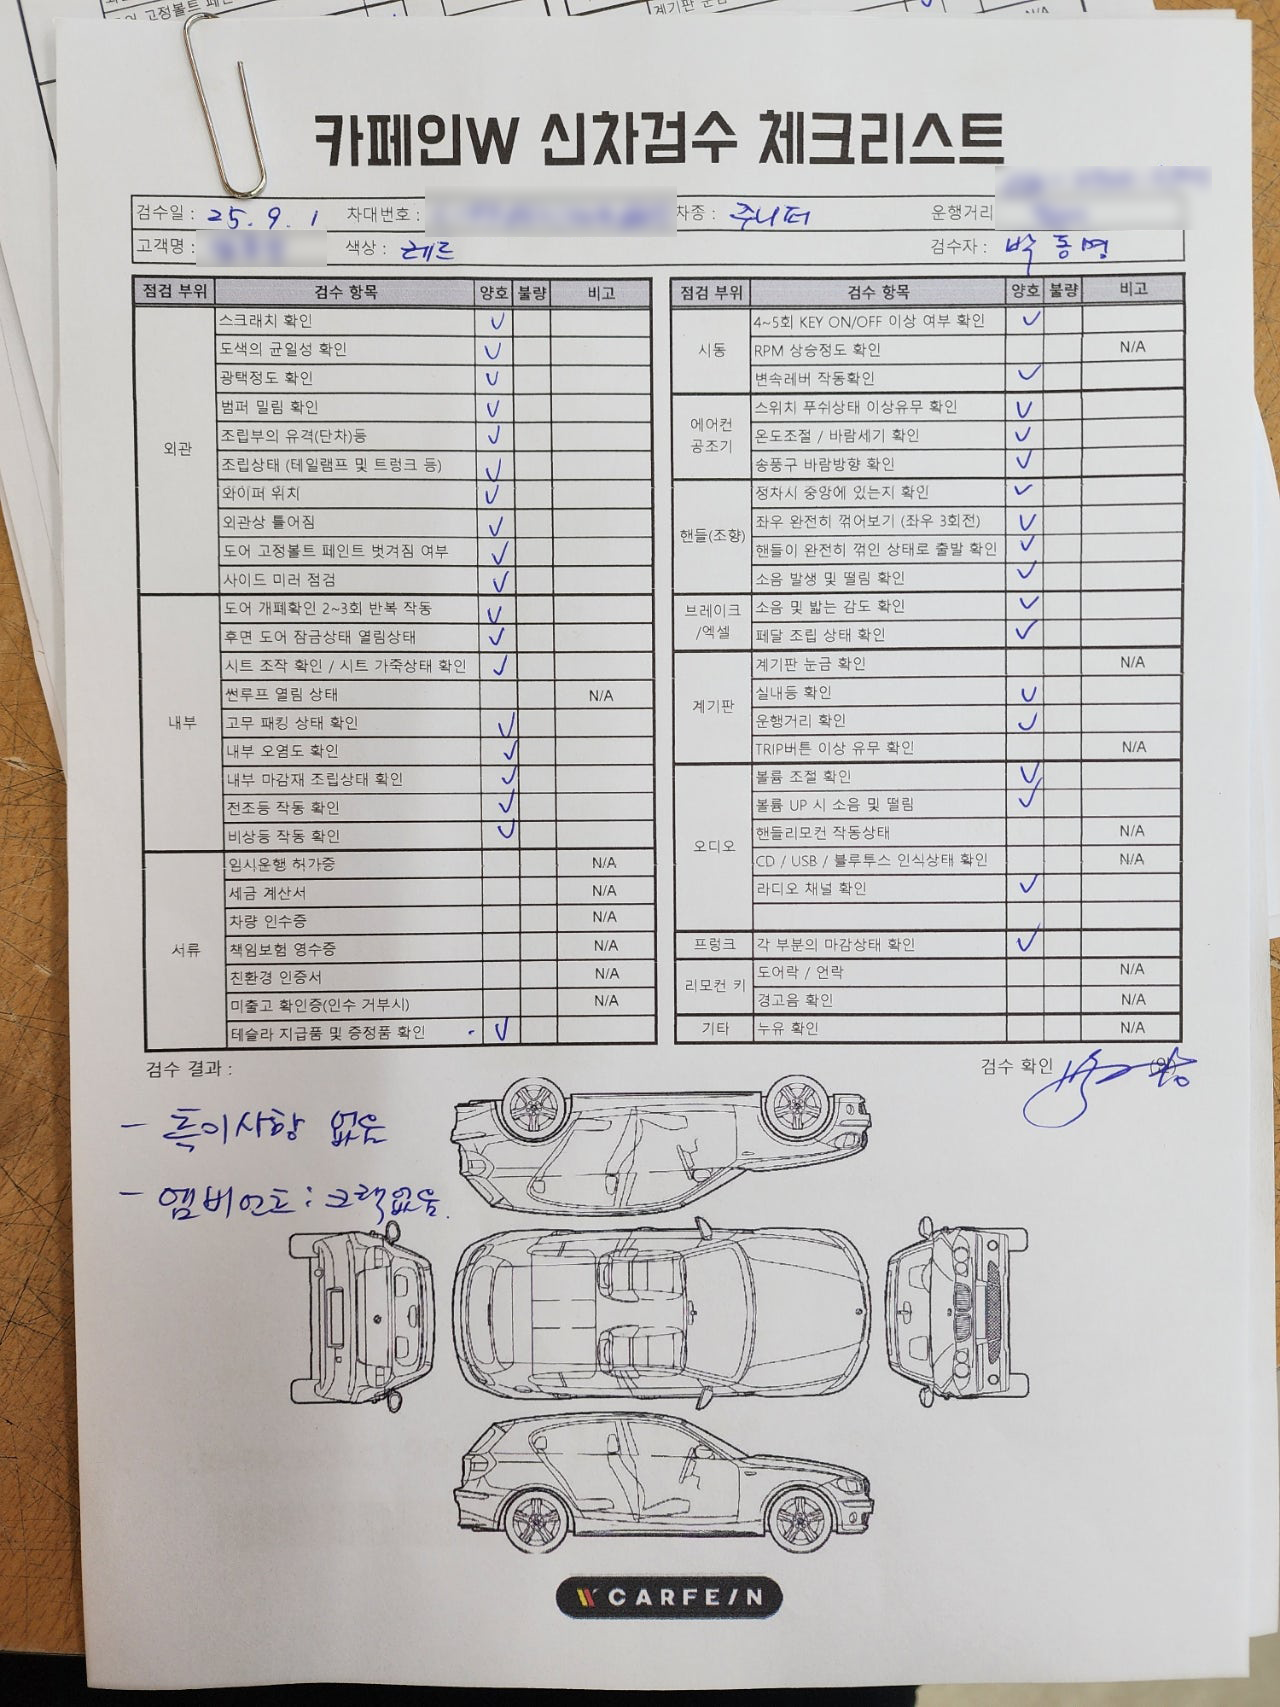 카페인W 신차검수 체크리스트
검수일 : 25. 9. 1 차대번호 : 차종 : 주니퍼 운행거리
고객명 : 색상 : 검수자 : 박동명
점검 부위 검수 항목 양호 불량 비고
외관
스크래치 확인 ✓
도색의 균일성 확인 ✓
광택정도 확인 ✓
범퍼 밀림 확인 ✓
조립부의 유격(단차)등 ✓
조립상태 (테일램프 및 트렁크 등) ✓
와이퍼 위치 ✓
외관상 틀어짐 ✓
도어 고정볼트 페인트 벗겨짐 여부 ✓
사이드 미러 점검 ✓
내부
도어 개폐확인 2~3회 반복 작동 ✓
후면 도어 잠금상태 열림상태 ✓
시트 조작 확인 / 시트 가죽상태 확인 ✓
썬루프 열림 상태 N/A
고무 패킹 상태 확인 ✓
내부 오염도 확인 ✓
내부 마감재 조립상태 확인 ✓
전조등 작동 확인 ✓
비상등 작동 확인 ✓
서류
임시운행 허가증 N/A
세금 계산서 N/A
차량 인수증 N/A
책임보험 영수증 N/A
친환경 인증서 N/A
미출고 확인증(인수 거부시) N/A
테슬라 지급품 및 증정품 확인 ✓
점검 부위 검수 항목 양호 불량 비고
시동
4~5회 KEY ON/OFF 이상 여부 확인 ✓
RPM 상승정도 확인 N/A
변속레버 작동확인 ✓
에어컨
공조기
스위치 푸쉬상태 이상유무 확인 ✓
온도조절 / 바람세기 확인 ✓
송풍구 바람방향 확인 ✓
핸들(조향)
정차시 중앙에 있는지 확인 ✓
좌우 완전히 꺾어보기 (좌우 3회전) ✓
핸들이 완전히 꺾인 상태로 출발 확인 ✓
소음 발생 및 떨림 확인 ✓
브레이크
/엑셀
소음 및 밟는 감도 확인 ✓
페달 조립 상태 확인 ✓
계기판
계기판 눈금 확인 N/A
실내등 확인 ✓
운행거리 확인 ✓
TRIP버튼 이상 유무 확인 N/A
오디오
볼륨 조절 확인 ✓
볼륨 UP 시 소음 및 떨림 ✓
핸들리모컨 작동상태 N/A
CD / USB / 블루투스 인식상태 확인 N/A
라디오 채널 확인 ✓
프렁크
각 부분의 마감상태 확인 ✓
리모컨 키
도어락 / 언락 N/A
경고음 확인 N/A
기타
누유 확인 N/A
검수 결과 :
검수 확인
- 특이사항 없음
- 엠비언트 : 크랙없음.
CARFE/N